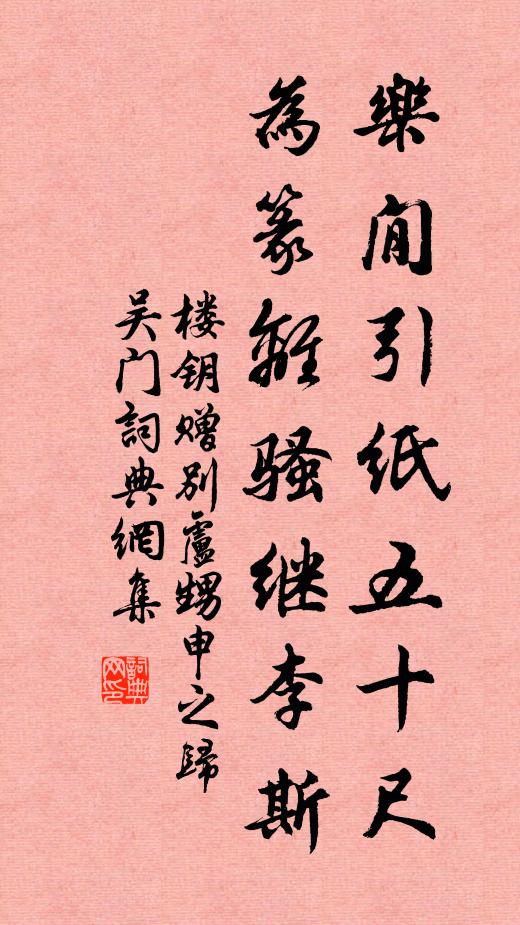 樂閒引紙五十尺
為篆離騷継李斯
楼钥赠别盧甥申之歸
吴门詞典網集
詞典网印